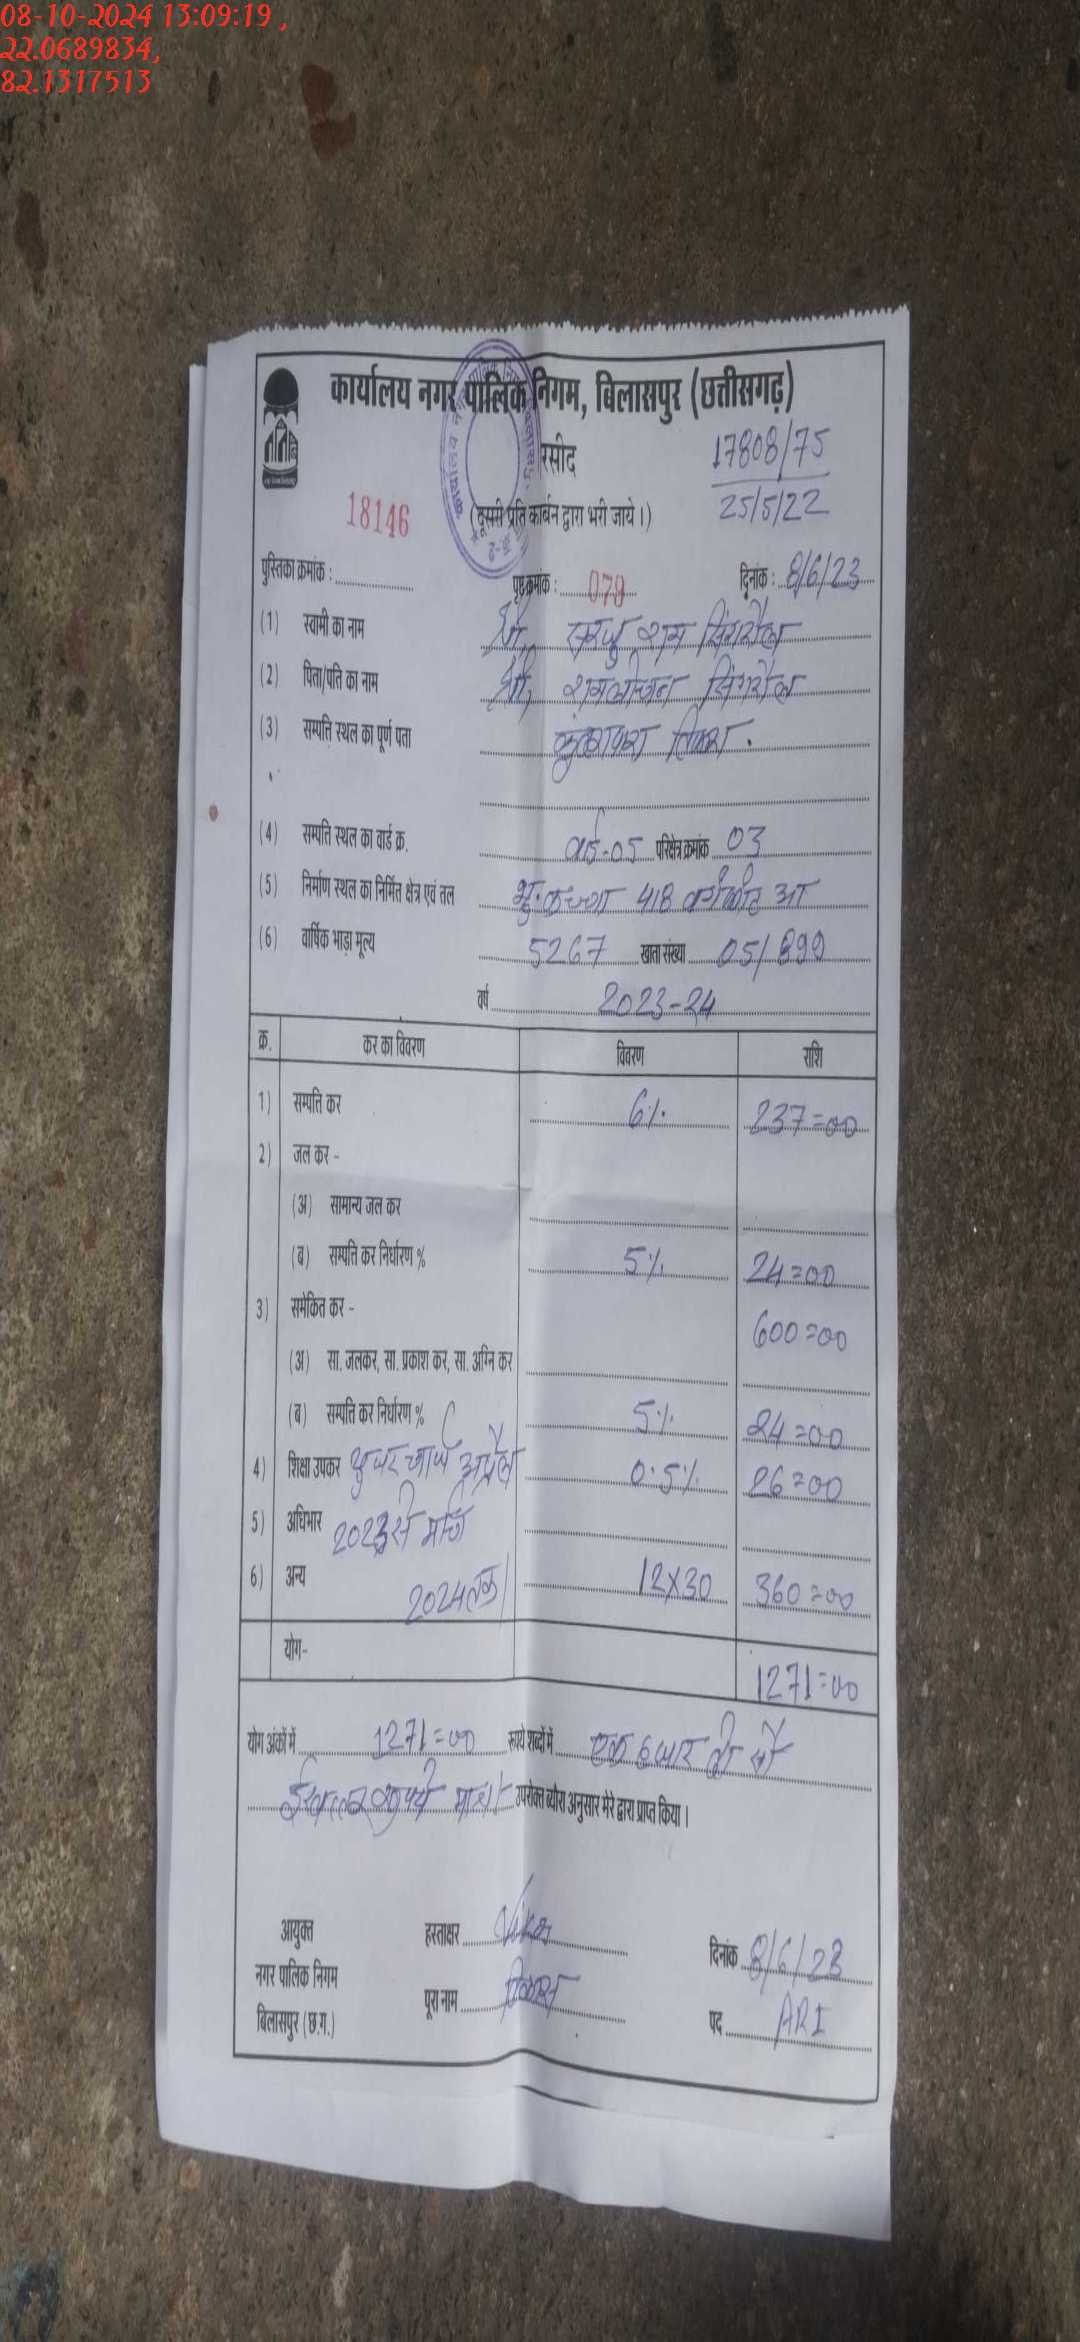 08-10-2024 13:09:19 ,
22.0689834,
82.1317513
कार्यालय नगर पालिक निगम, बिलासपुर (छत्तीसगढ़)
रसीद
17808/75
25/5/22
18146
(दूसरी प्रति कार्बन द्वारा भरी जाये।)
पुस्तिका क्रमांक : पृष्ठ क्रमांक : 079 दिनांक : 8/6/23
(1) स्वामी का नाम श्री सरजु राम सिंगरौल
(2) पिता/पति का नाम श्री सिंगरौल
(3) सम्पत्ति स्थल का पूर्ण पता
(4) सम्पत्ति स्थल का वार्ड क्र. वार्ड-05 परिक्षेत्र क्रमांक 03
(5) निर्माण स्थल का निर्मित क्षेत्र एवं तल भू. कच्चा 418
(6) वार्षिक भाड़ा मूल्य 5267 खाता संख्या 05/899
वर्ष 2023-24
क्र. कर का विवरण विवरण राशि
1) सम्पत्ति कर 6% 237=00
2) जल कर -
(अ) सामान्य जल कर
(ब) सम्पत्ति कर निर्धारण % 5% 24=00
3) समेकित कर - 600=00
(अ) सा. जलकर, सा. प्रकाश कर, सा. अग्नि कर
(ब) सम्पत्ति कर निर्धारण % 5% 24=00
4) शिक्षा उपकर यूजर चार्ज अप्रैल 0.5% 26=00
5) अधिभार 2023 से मार्च
6) अन्य 2024 तक 12X30 360=00
योग- 1271=00
योग अंकों में 1271=00 रूपये शब्दों में एक हजार दो सौ
रूपये मात्र उपरोक्त ब्योरा अनुसार मेरे द्वारा प्राप्त किया।
आयुक्त हस्ताक्षर
दिनांक 8/6/23
नगर पालिक निगम पूरा नाम
बिलासपुर (छ.ग.) पद ARI